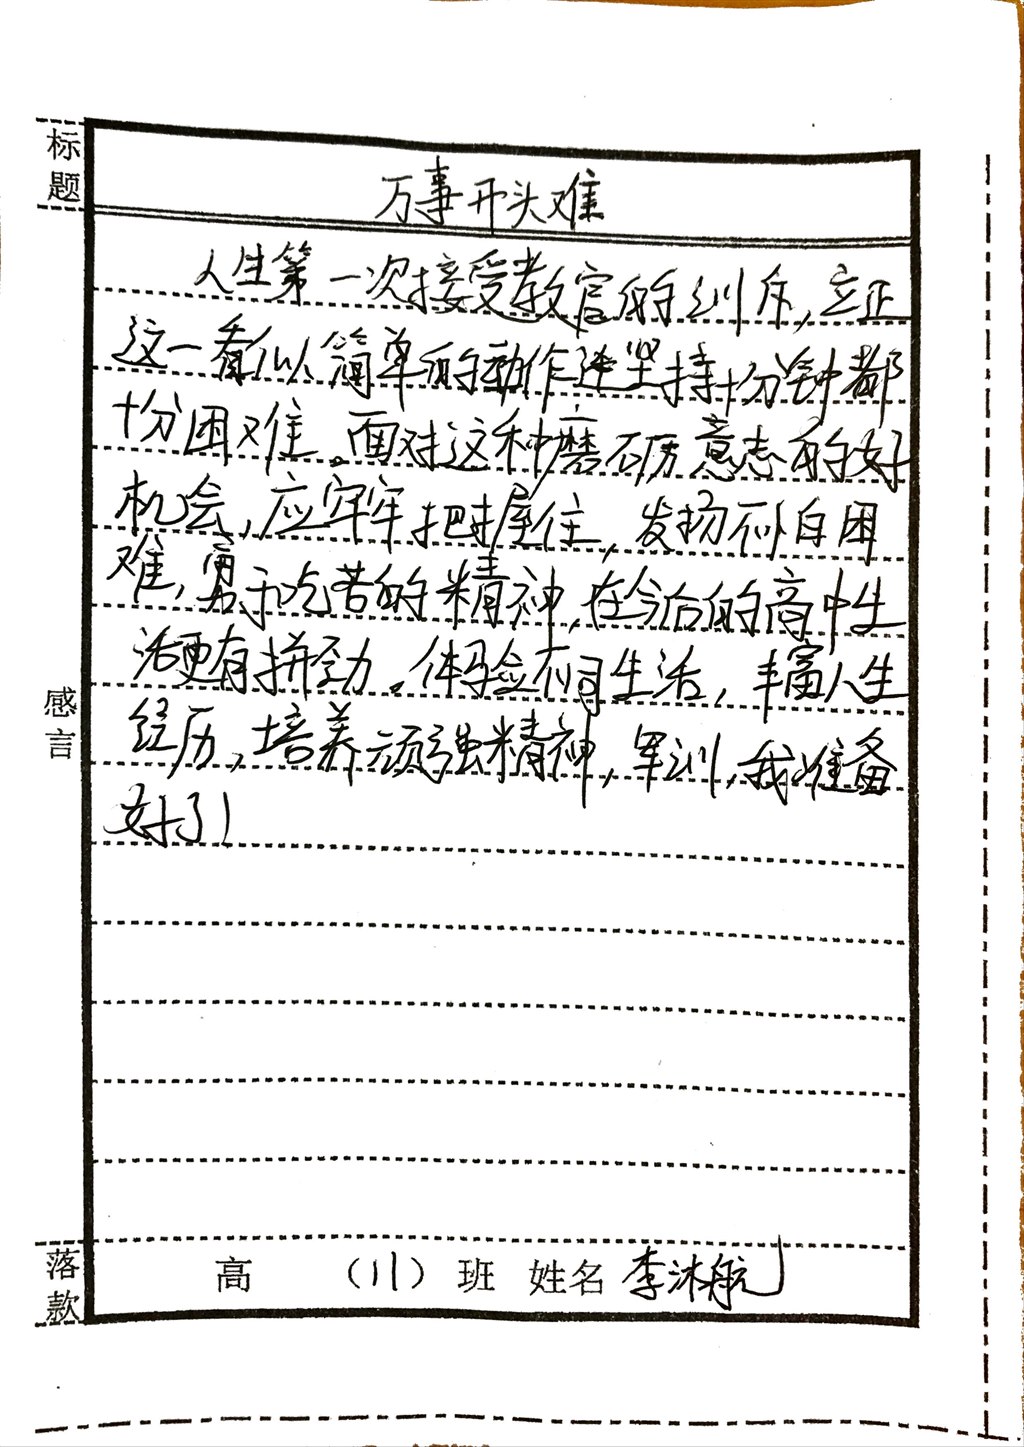 标题
万事开头难
人生第一次接受教官的训斥，立正
这一看似简单的动作连坚持十分钟都
十分困难。面对这种磨砺意志的好
机会，应牢牢把握住，发扬不怕困
难，勇于吃苦的精神，在今后的高中生
活更有拼劲。体验不同生活，丰富人生
经历，培养顽强精神，军训，我准备
好了！
感言
落款
高 （11）班 姓名 李沐航